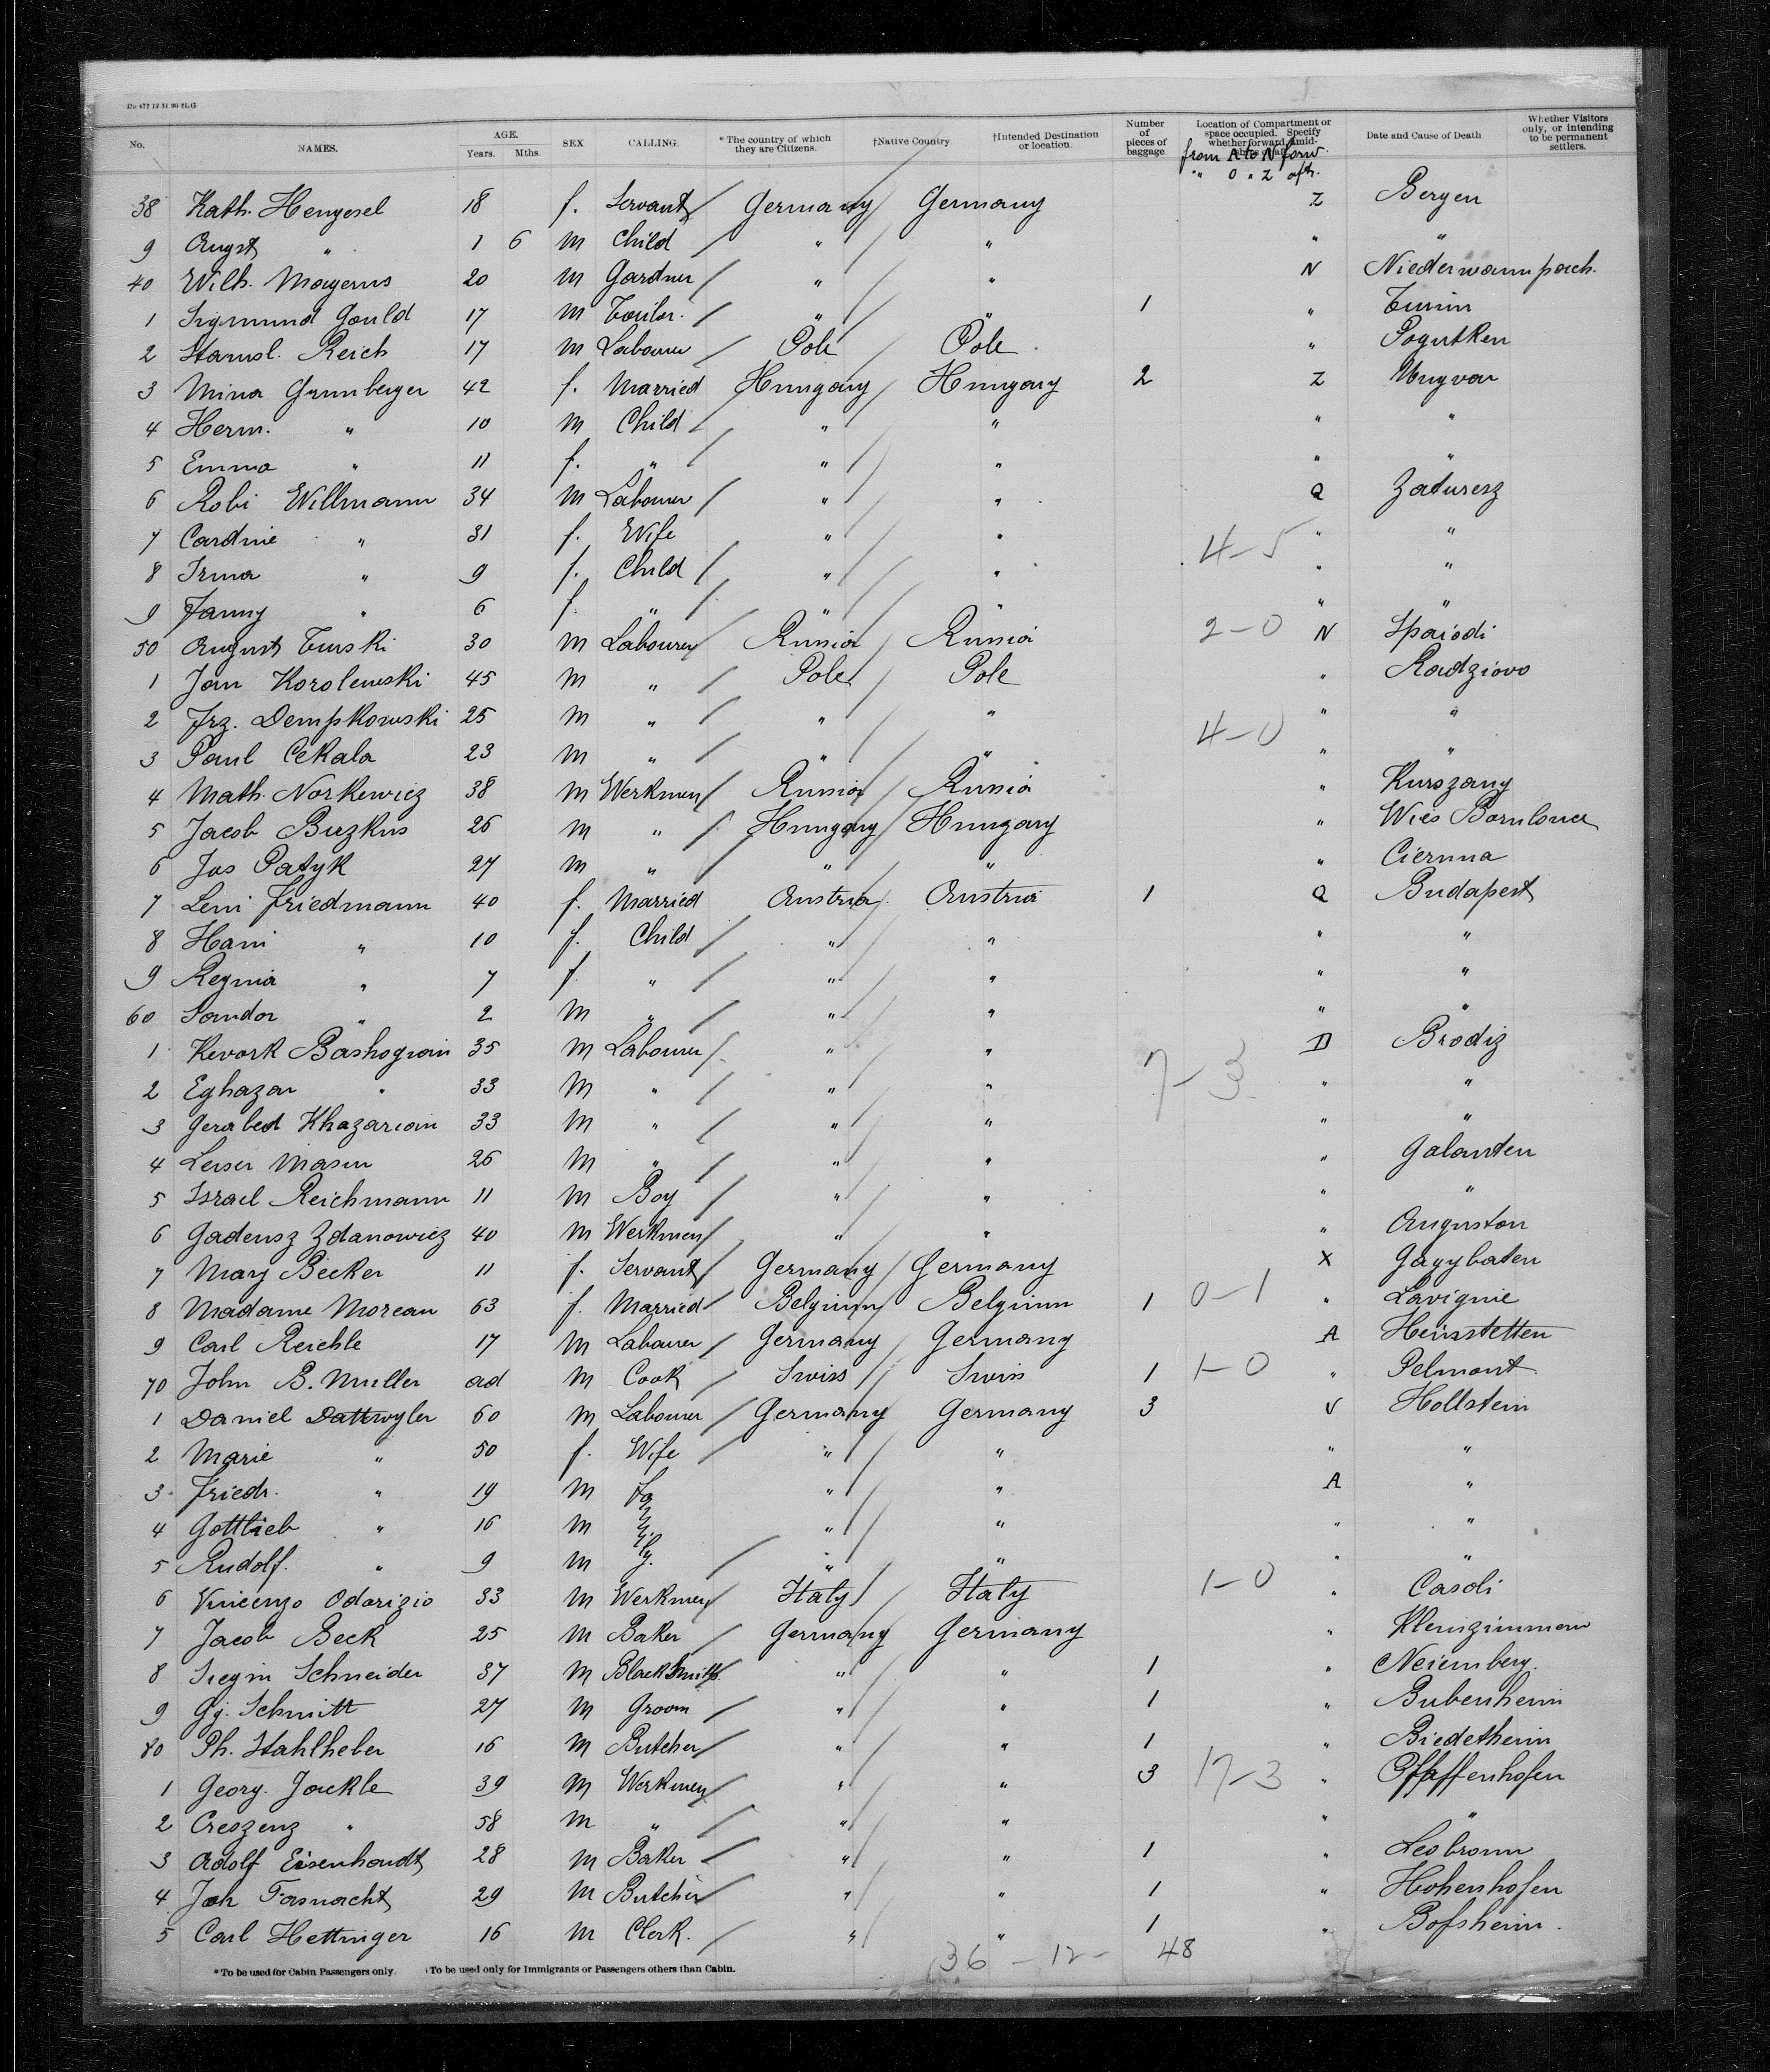 Do 477 12 31 90 2LG
No. NAMES. AGE. Years. Mths. SEX CALLING. * The country of which they are Citizens. †Native Country †Intended Destination or location. Number of pieces of baggage Location of Compartment or space occupied. Specify whether forward, amid- Date and Cause of Death Whether Visitors only, or intending to be permanent settlers.
from A to N forw.
" O " Z aft.
38 Kath. Hengesel 18 f. Servant Germany Germany Z Bergen
9 Augst " 1 6 m Child " " " "
40 Wilh. Magerus 20 m Gardner " " N Niederwampach.
1 Sigmund Gould 17 m Tailor. " " 1 " Turin
2 Stanisl. Reich 17 m Labourer Pole Pole " Pogutken
3 Mina Grunberger 42 f. Married Hungary Hungary 2 Z Ungvar
4 Herm. " 10 m Child " " " "
5 Emma " 11 f. " " " " "
6 Robi Willmann 34 m Labourer " " Q Zaturesz
7 Cardine " 31 f. Wife " " 4-5 " "
8 Irma " 9 f. Child " " " "
9 Fanny " 6 f. " " " " "
50 August Turski 30 m Labourer Russia Russia 2-0 N Spaiodi
1 Jan Korolewski 45 m " Pole Pole " Radziovo
2 Frz. Dempkowski 25 m " " " " "
3 Paul Cekala 23 m " " " 4-0 " "
4 Math. Norkewicz 38 m Werkmen Russia Russia " Kurszany
5 Jacob Buzkus 26 m " Hungary Hungary " Wies
6 Jos Patyk 27 m " " " " Ciernna
7 Leni Friedmann 40 f. Married Austria Austria 1 Q Budapest
8 Hani " 10 f. Child " " " "
9 Regina " 7 f. " " " " "
60 Sandor " 2 m " " " " "
1 Kevork Bashogian 35 m Labourer " " D Brodiz
2 Eghazar " 33 m " " " 7-3 " "
3 Gerabed Khazarian 33 m " " " " "
4 Leiser Masur 26 m " " " " Galanten
5 Israel Reichmann 11 m Boy " " " "
6 Gadeusz Zdanowicz 40 m Werkmen " " " Auguston
7 Mary Becker 11 f. Servant Germany Germany X Gagybaten
8 Madame Moreau 63 f. Married Belgium Belgium 1 0-1 " Lavignie
9 Carl Reichle 17 m Labourer Germany Germany A Heinstetten
70 John B. Muller ad m Cook Swiss Swiss 1 1-0 " Pelmont
1 Daniel Dattwyler 60 m Labourer Germany Germany 3 V Hollstein
2 Marie " 50 f. Wife " " " "
3 Friedr. " 19 m " " A "
4 Gottlieb " 16 m " " " "
5 Rudolf. " 9 m " " " "
6 Vincenzo Odorizio 33 m Werkmen Italy Italy 1-0 " Casoli
7 Jacob Beck 25 m Baker Germany Germany " Kleinzimmern
8 Siegm Schneider 37 m Blacksmith " " 1 " Neiemberg.
9 Gg. Schmitt 27 m Groom " " 1 " Bubenheim
80 Ph. Stahlheber 16 m Butcher " " 1 " Biedesheim
1 Georg. Jackle 39 m Werkmen " " 3 17-3 " Pfaffenhofen
2 Creszenz " 58 m " " " " "
3 Adolf Eisenhardt 28 m Baker " " 1 " Leobronn
4 Joh Fasnacht 29 m Butcher " " 1 " Hohenhofen
5 Carl Hettinger 16 m Clerk. " " 1 " Bofsheim.
36 - 12 - 48
*To be used for Cabin Passengers only. †To be used only for Immigrants or Passengers others than Cabin.